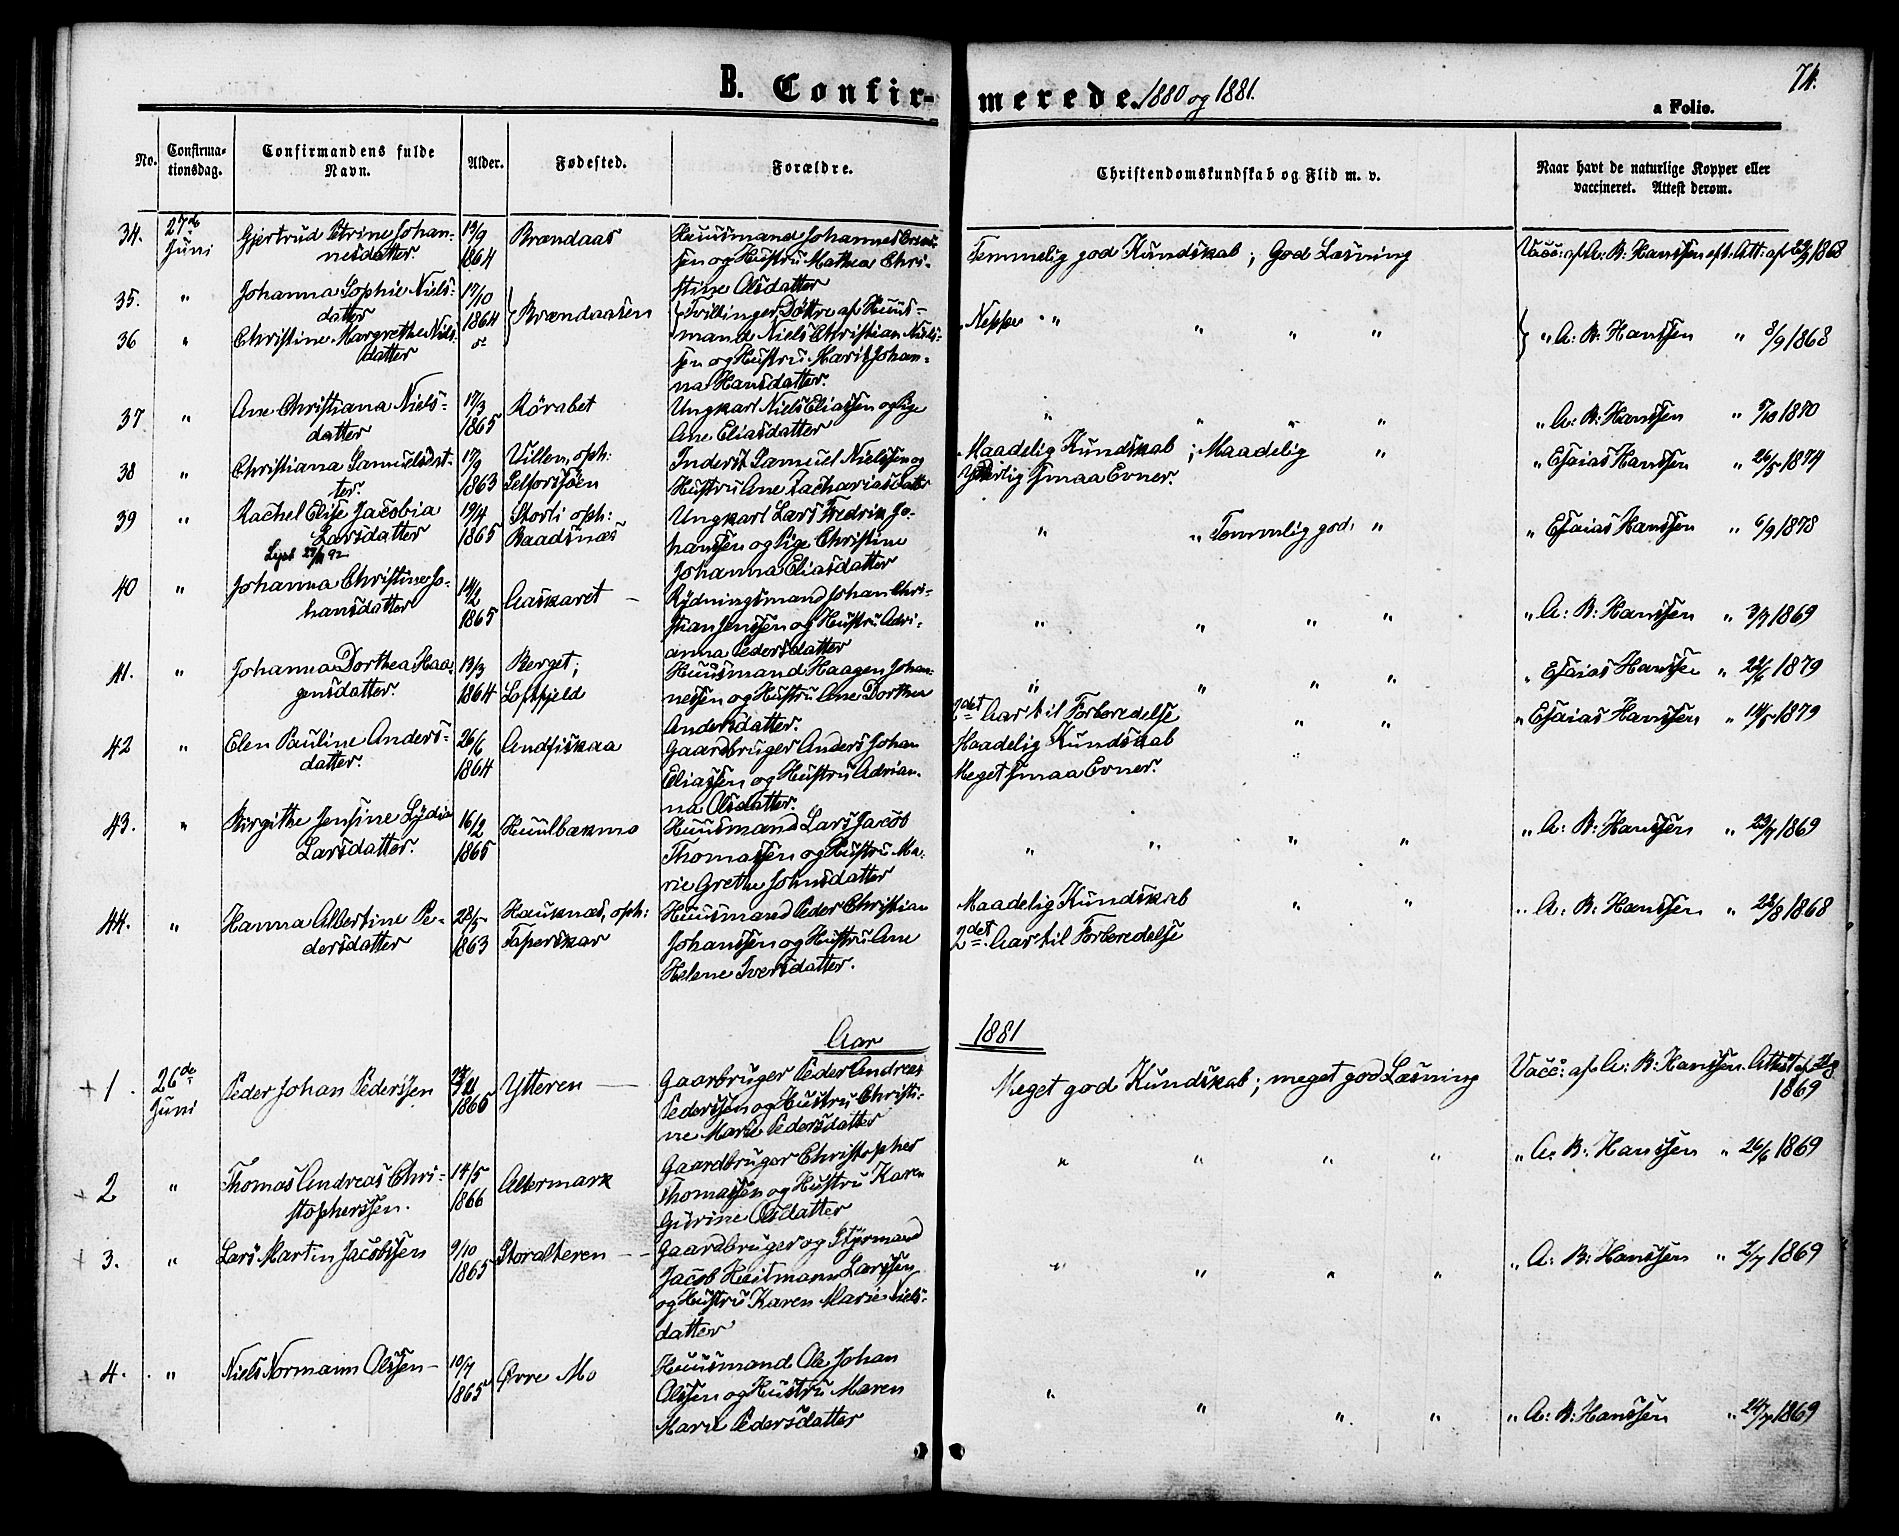 B. Confir-
merede. 1880 og 1881.
74.
a Folio.
No.
Confirma-
tionsdag.
Confirmandens fulde
Navn.
Alder.
Fødested.
Forældre.
Christendomskundskab og Flid m. v.
Naar havt de naturlige Kopper eller
vaccineret. Attest derom.
34. 27de Juni
Gjertrud Petrine Johan-
nesdatter.
13/9 1864
Brændaas
Huusmand Johannes
sen og Hustru Mathea Chri-
stine Olsdatter
Temmelig god Kundskab; God Læsning
Vacc: af A: B: Hanssen eft: Att: af 1868
35. "
Johanna Sophie Niels-
datter
17/10 1864
Brændaasen
Tvillinger Døttre af Huus-
mand Niels Christian Niels-
sen og Hustru Marit Johan-
na Hansdatter.
Neppe " " " " "
" A: B: Hanssen " 8/9 1868
36 "
Christine Margrethe Niels-
datter
37 "
Ane Christiana Niels-
datter
17/3 1865
Rørabet
Ungkarl Niels Eliassen og Pige
Ane Eliasdatter
" " " "
" A: B: Hanssen " 1870
38 "
Christiana Samuelsdat-
ter.
17/9 1863
Villen, oph:
Selforssøen
Inderst Samuel Nielssen og
Hustru Ane Zachariasdatter
Maadelig Kundskab; Maadelig "
Yderlig smaa Evner.
" Esaias Hanssen " 26/5 1874
39 "
Rachel Elise Jacobia
Larsdatter
19/4 1865
Storli oph:
Baadsnæs
Ungkarl Lars Fredrik Jo-
hanssen og Pige Christine
Johanna Eliasdatter
" " Temmelig god "
" Esaias Hanssen " 6/9 1878
40 "
Johanna Christine Jo-
hansdatter
14/2 1865
Aaskaret -
Rydningsmand Johan Chri-
stian Jenssen og Hustru Adri-
anna Pedersdatter
" " " "
" A: B: Hanssen " 3/7 1869
41. "
Johanna Dorthea Haa-
gensdatter.
13/3 1864
Berget;
Loftfjeld
Huusmand Haagen Johan-
nessen og Hustru Ane Dorthea
Andersdatter.
" " " "
" Esaias Hanssen " 22/6 1879
42 "
Elen Pauline Anders-
datter.
26/6 1864
Andfiskaa
Gaardbruger Anders Johan
Eliassen og Hustru Adrian-
na Olsdatter.
2det Aar til Forberedelse
Maadelig Kundskab " "
Meget smaa Evner.
" Esaias Hanssen " 14/5 1879
43. "
Birgithe Jensine Lydia
Larsdatter.
16/2 1865
Huulbækmo
Huusmand Lars Jacob
Thomassen og Hustru Ma-
rie Grethe Johnsdatter
" " " "
" A: B: Hanssen " 23/7 1869
44. "
Hanna Albertine Pe-
dersdatter
28/5 1863
Hauknæs, oph:
Taperskar
Huusmand Peder Christian
Johanssen og Hustru Ane
Helene Iversdatter.
Maadelig Kundskab " "
2det Aar til Forberedelse
" A: B: Hanssen " 22/8 1868
Aar 1881
+ 1. 26de Juni
Peder Johan Pederssen
1865
Ytteren -
Gaarbruger Peder Andreas
Pederssen og Hustru Christi-
ne Marie Pedersdatter
Meget god Kundskab; meget god Læsning
Vacc: af A: B: Hanssen. Attest af
1869
+ 2 "
Thomas Andreas Chri-
stopherssen.
14/5 1866
Altermark
Gaardbruger Christopher
Thomassen og Hustru Karen
Gurine Olsdatter
" " " "
" A: B: Hanssen " 26/6 1869
+ 3. "
Lars Martin Jacobssen
9/10 1865
Storalteren - -
Gaardbruger og Styrmand
Jacob Heitmann Larssen
og Hustru Karen Marie Niels-
datter
" " " "
" A: B: Hanssen " 2/7 1869
+ 4. "
Niels Normann Olssen -
10/7 1865
Øvre Mo
Huusmand Ole Johan
Olssen og Hustru Maren
Marie Pedersdatter
" " " "
" A: B: Hanssen " 24/7 1869